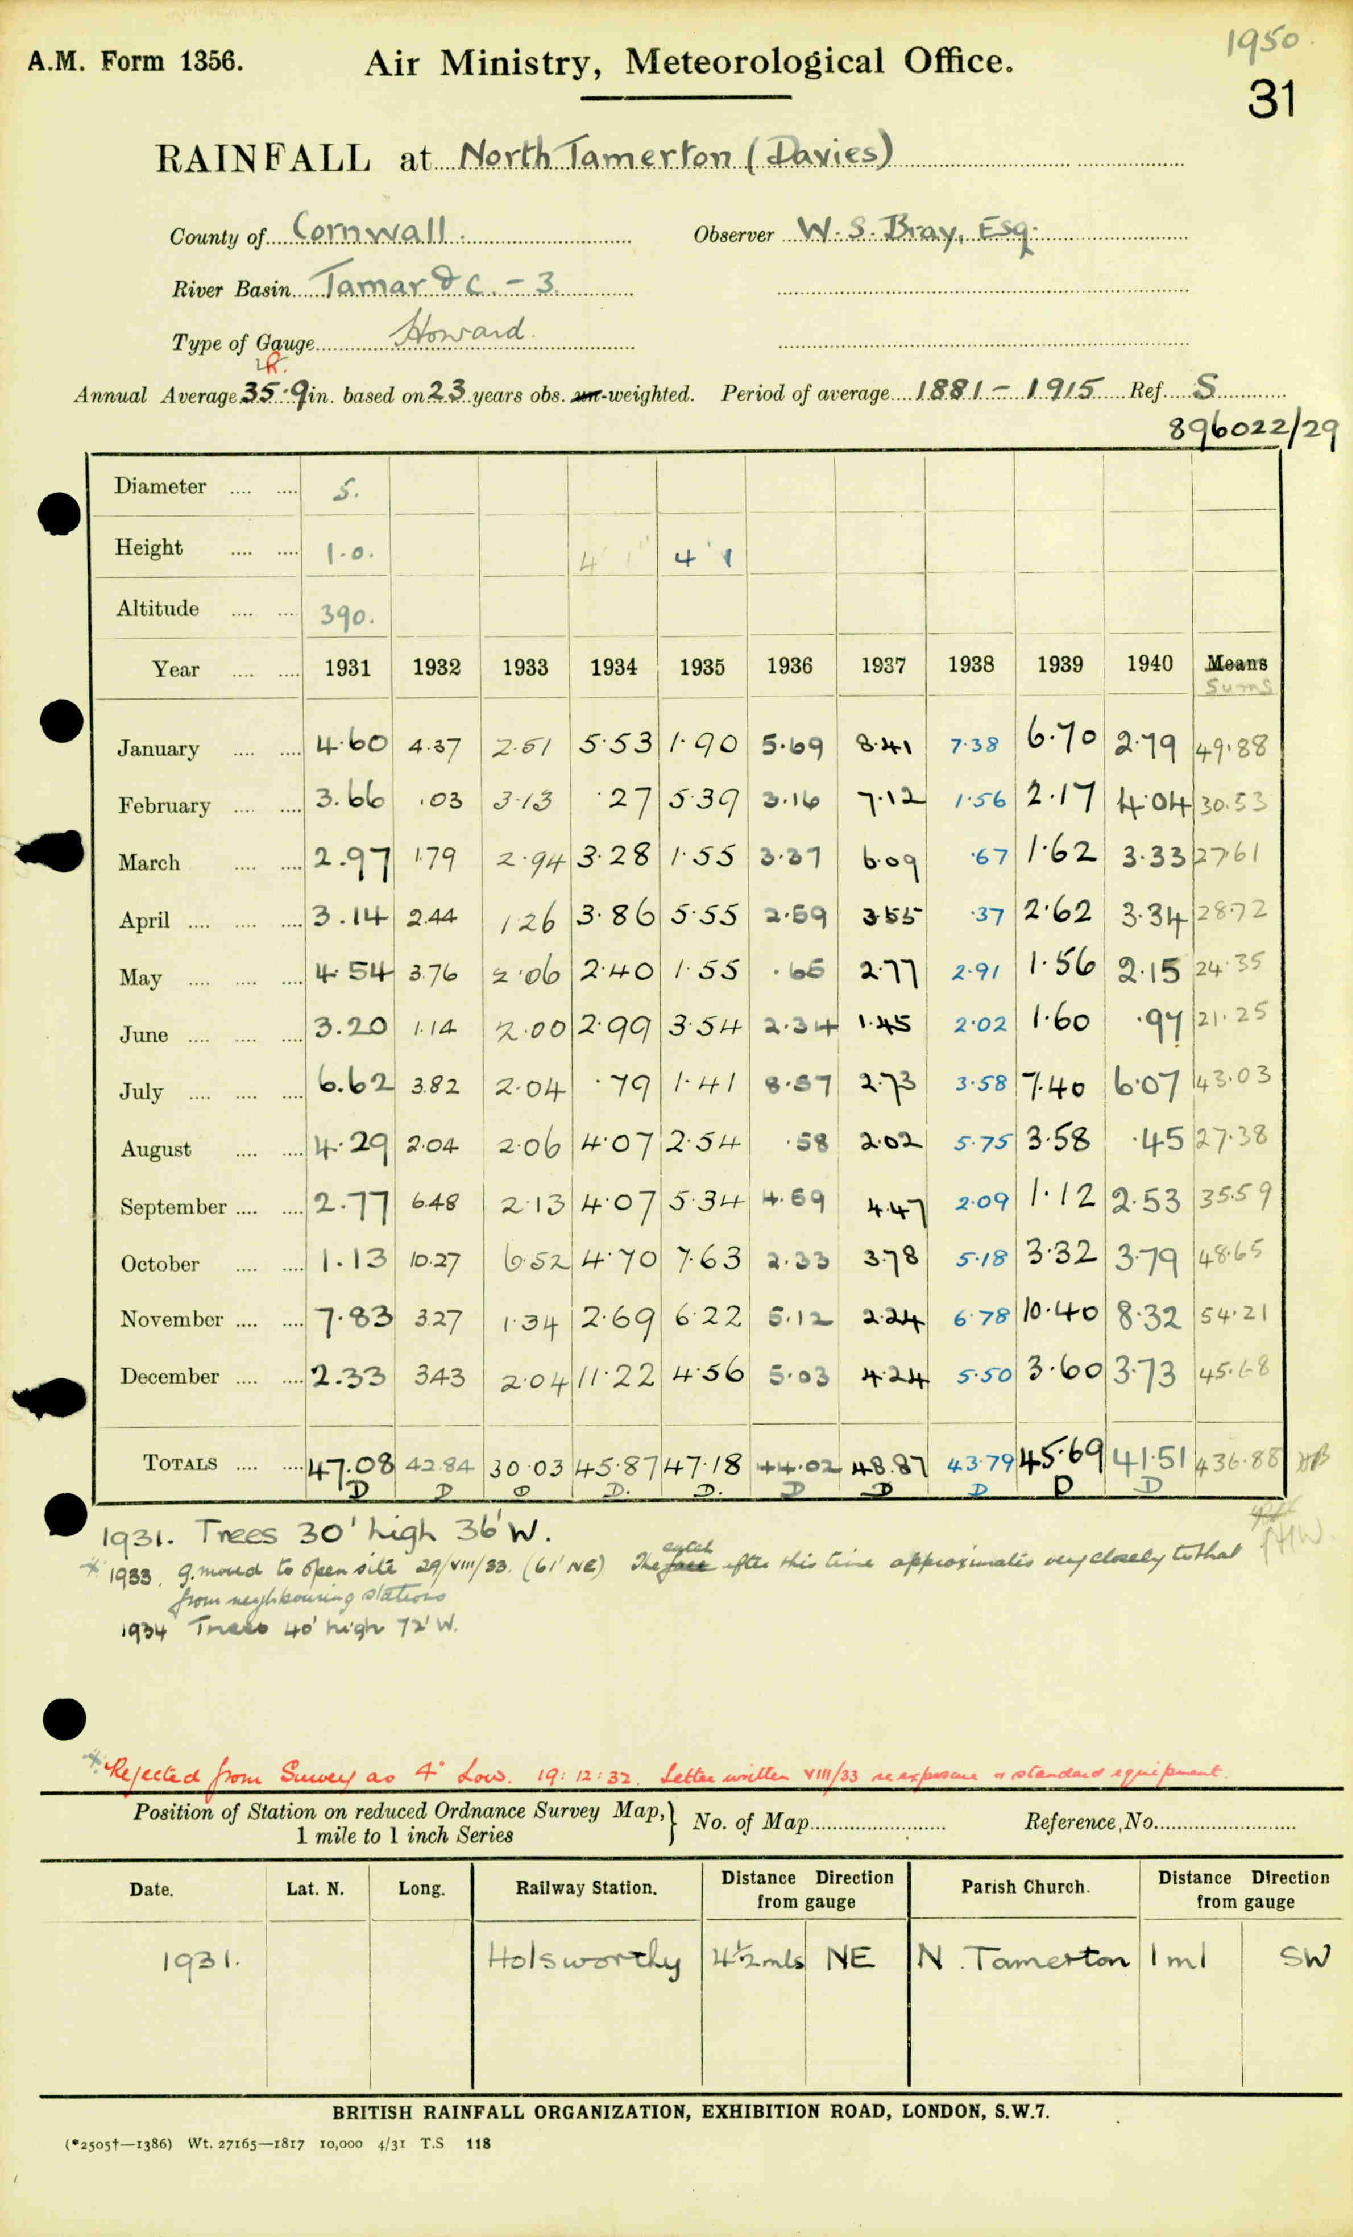 1950.
A.M. Form 1356. Air Ministry, Meteorological Office.
31
RAINFALL at North Tamerton (Davies)
County of Cornwall. Observer W. S. Bray, Esq.
River Basin Tamar &c. - 3.
Type of Gauge Howard.
Annual Average 35.9 in. based on 23 years obs. un-weighted. Period of average 1881 - 1915 Ref. S
896022/29
Diameter 5.
Height 1.0. 4' 1" 4' 1
Altitude 390.
Year 1931 1932 1933 1934 1935 1936 1937 1938 1939 1940 Means
Sums
January 4.60 4.37 2.51 5.53 1.90 5.69 8.41 7.38 6.70 2.79 49.88
February 3.66 .03 3.13 .27 5.39 3.16 7.12 1.56 2.17 4.04 30.53
March 2.97 1.79 2.94 3.28 1.55 3.37 6.09 .67 1.62 3.33 27.61
April 3.14 2.44 1.26 3.86 5.55 2.59 3.55 .37 2.62 3.34 28.72
May 4.54 3.76 2.06 2.40 1.55 .65 2.77 2.91 1.56 2.15 24.35
June 3.20 1.14 2.00 2.99 3.54 2.34 1.45 2.02 1.60 .97 21.25
July 6.62 3.82 2.04 .79 1.41 8.57 2.73 3.58 7.40 6.07 43.03
August 4.29 2.04 2.06 4.07 2.54 .58 2.02 5.75 3.58 .45 27.38
September 2.77 6.48 2.13 4.07 5.34 4.59 4.47 2.09 1.12 2.53 35.59
October 1.13 10.27 6.52 4.70 7.63 2.33 3.78 5.18 3.32 3.79 48.65
November 7.83 3.27 1.34 2.69 6.22 5.12 2.24 6.78 10.40 8.32 54.21
December 2.33 3.43 2.04 11.22 4.56 5.03 4.24 5.50 3.60 3.73 45.68
TOTALS 47.08 42.84 30.03 45.87 47.18 44.02 48.87 43.79 45.69 41.51 436.88
D D D D. D. D D D D D
1931. Trees 30' high 36' W.
* 1933. g. moved to open site 29/VIII/33. (61' NE) The face catch after this time approximates very closely to that
from neighbouring stations
1934 Trees 40' high 72' W.
* Rejected from Survey as 4" Low. 19:12:32. Letter written VIII/33 re exposure & standard equipment.
Position of Station on reduced Ordnance Survey Map, No. of Map Reference No.
1 mile to 1 inch Series
Date. Lat. N. Long. Railway Station. Distance Direction from gauge Parish Church. Distance Direction from gauge
1931. Holsworthy 4½ mls NE N. Tamerton 1 ml SW
BRITISH RAINFALL ORGANIZATION, EXHIBITION ROAD, LONDON, S.W.7.
(*2505†—1386) Wt. 27165—1817 10,000 4/31 T.S 118